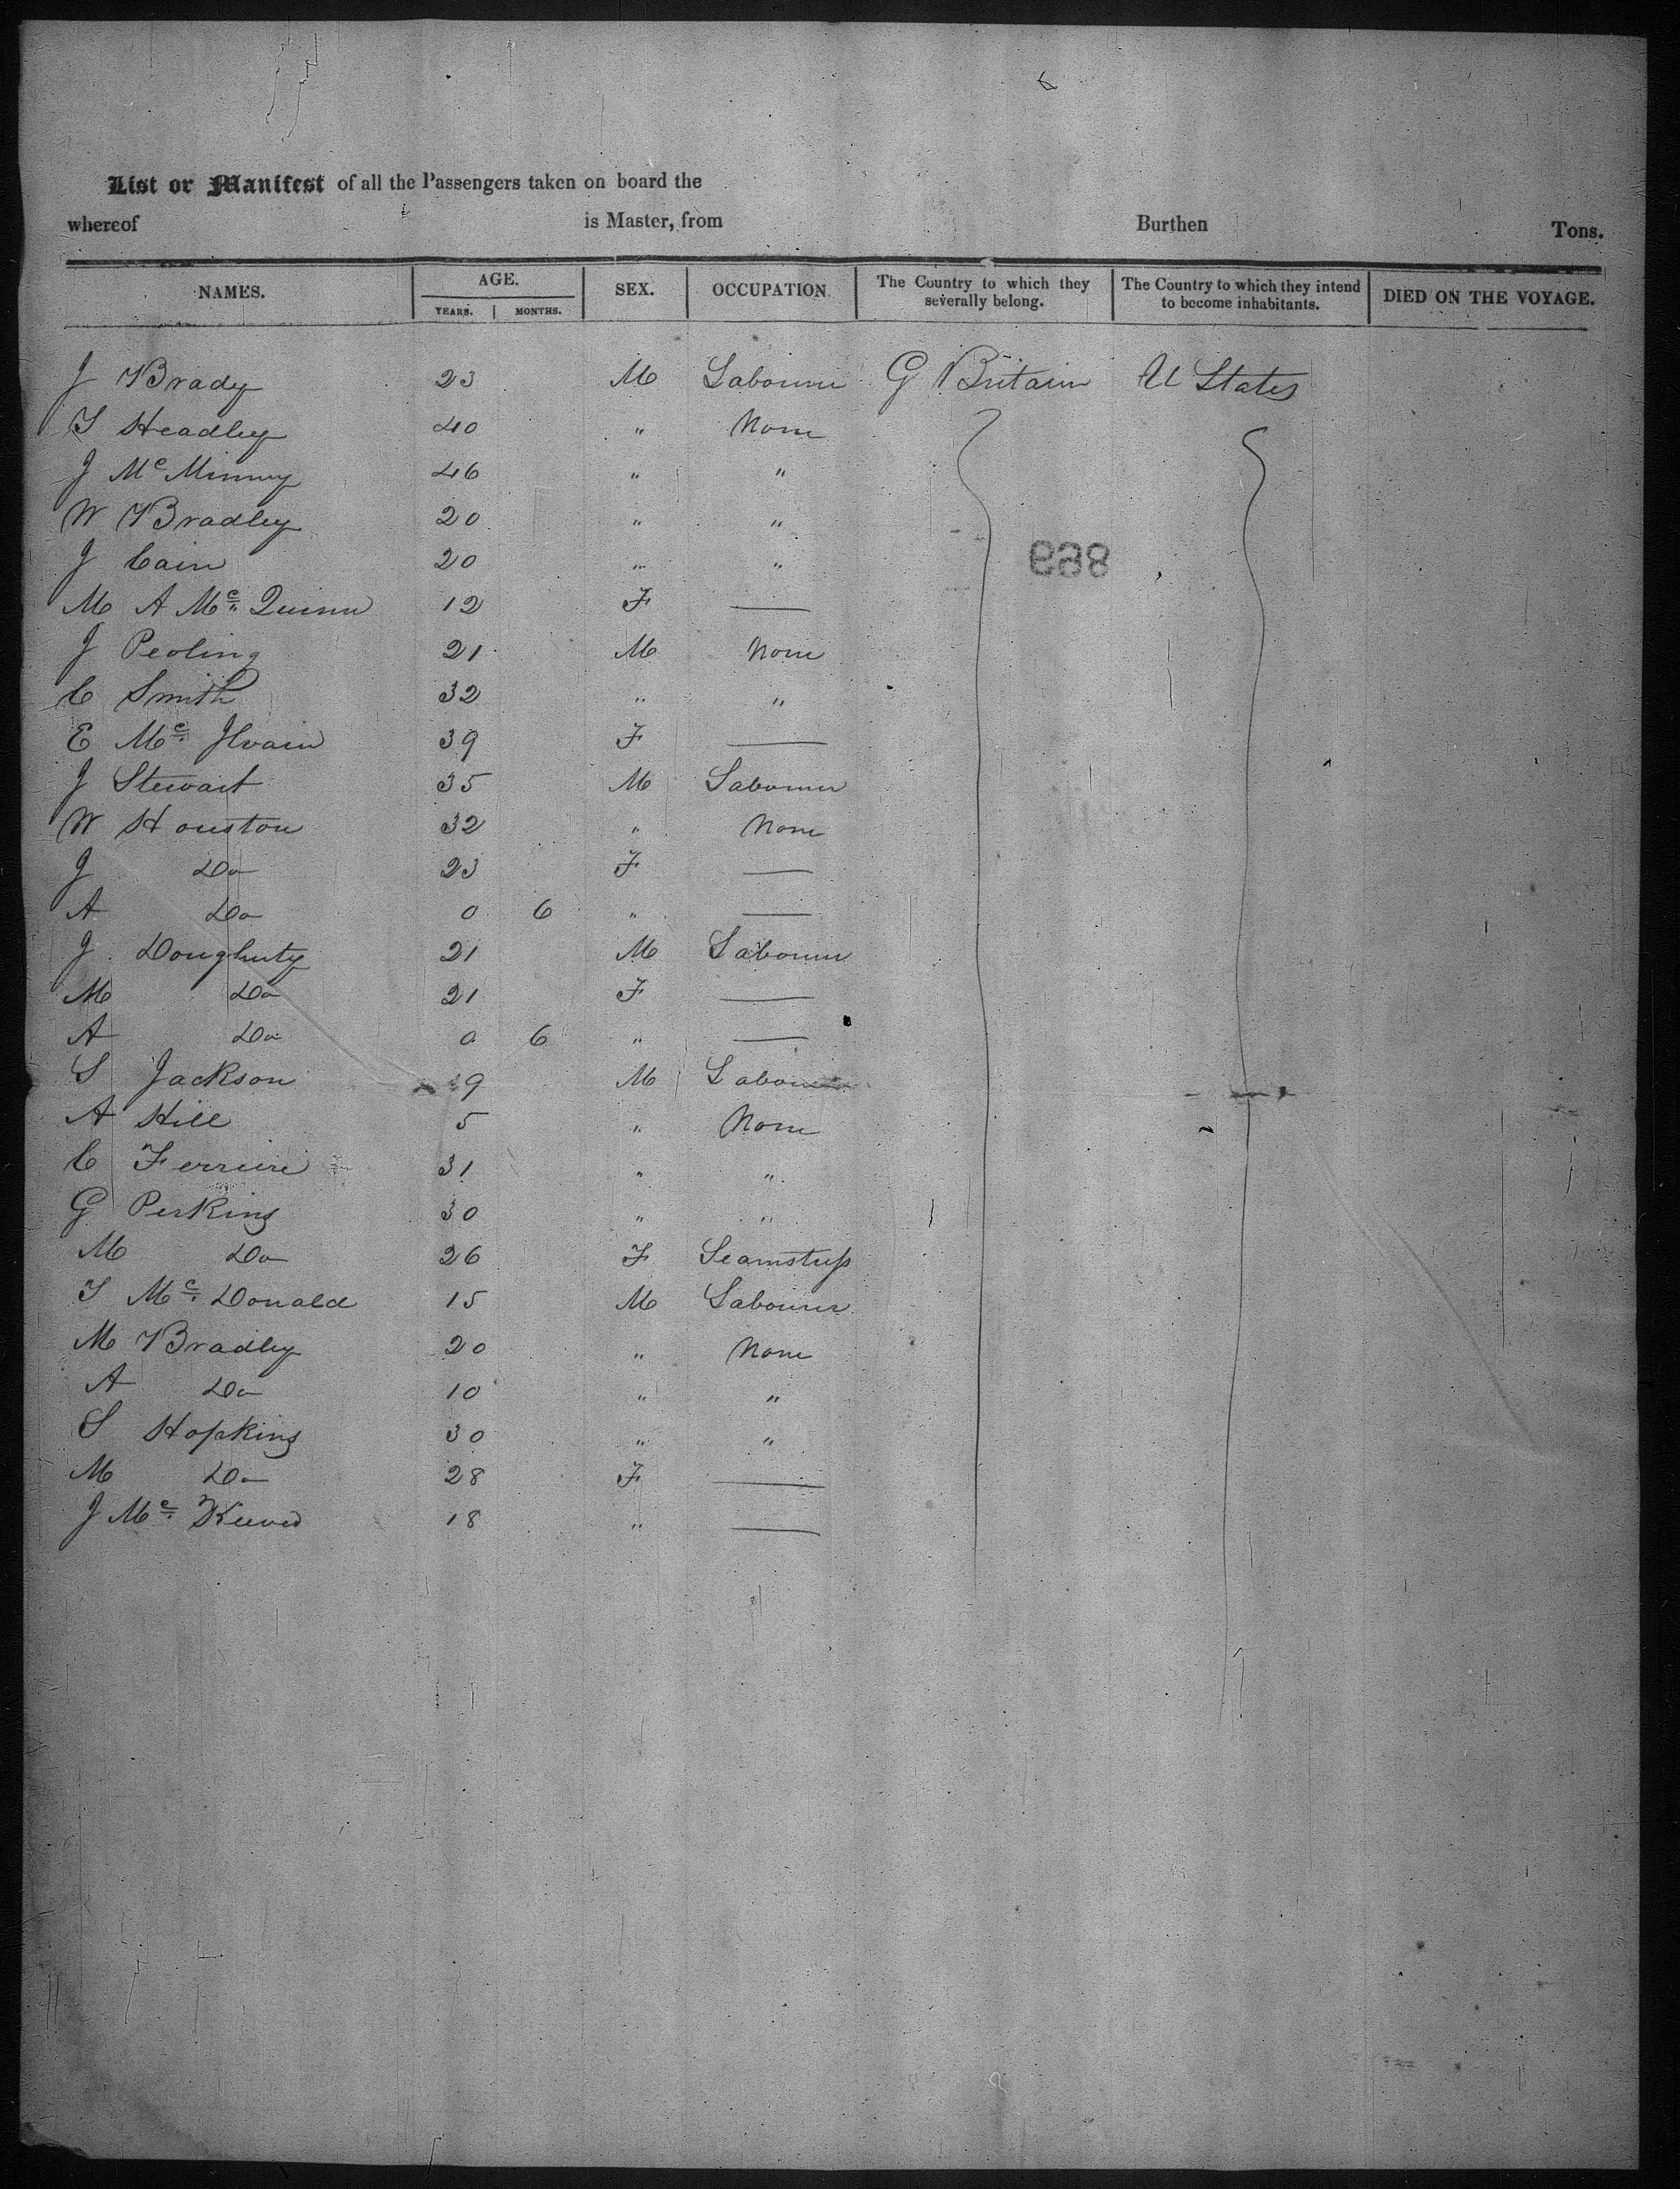 6
List or Manifest of all the Passengers taken on board the
whereof is Master, from Burthen Tons.
NAMES. AGE. YEARS. MONTHS. SEX. OCCUPATION The Country to which they severally belong. The Country to which they intend to become inhabitants. DIED ON THE VOYAGE.
J Brady 23 M Labourer G Britain U States
T Headley 40 " None
J Mc Minnuy 46 " "
W Bradley 20 " "
J Cain 20 " "
M A Mc Quinn 12 F —
J Peoling 21 M None
C Smith 32 " "
E Mc Ilvain 39 F —
J Stewart 35 M Labourer
W Houston 32 " None
J Do 23 F —
A Do 0 6 " —
J Dougherty 21 M Labourer
M Do 21 F —
A Do 0 6 " —
S Jackson 19 M Labourer
A Hill 5 " None
C Ferriere 31 " "
G Perkins 30 " "
M Do 26 F Seamstress
T Mc Donald 15 M Labourer
M Bradley 20 " None
A Do 10 " "
S Hopkins 30 " "
M Do 28 F —
J Mc 18 " —